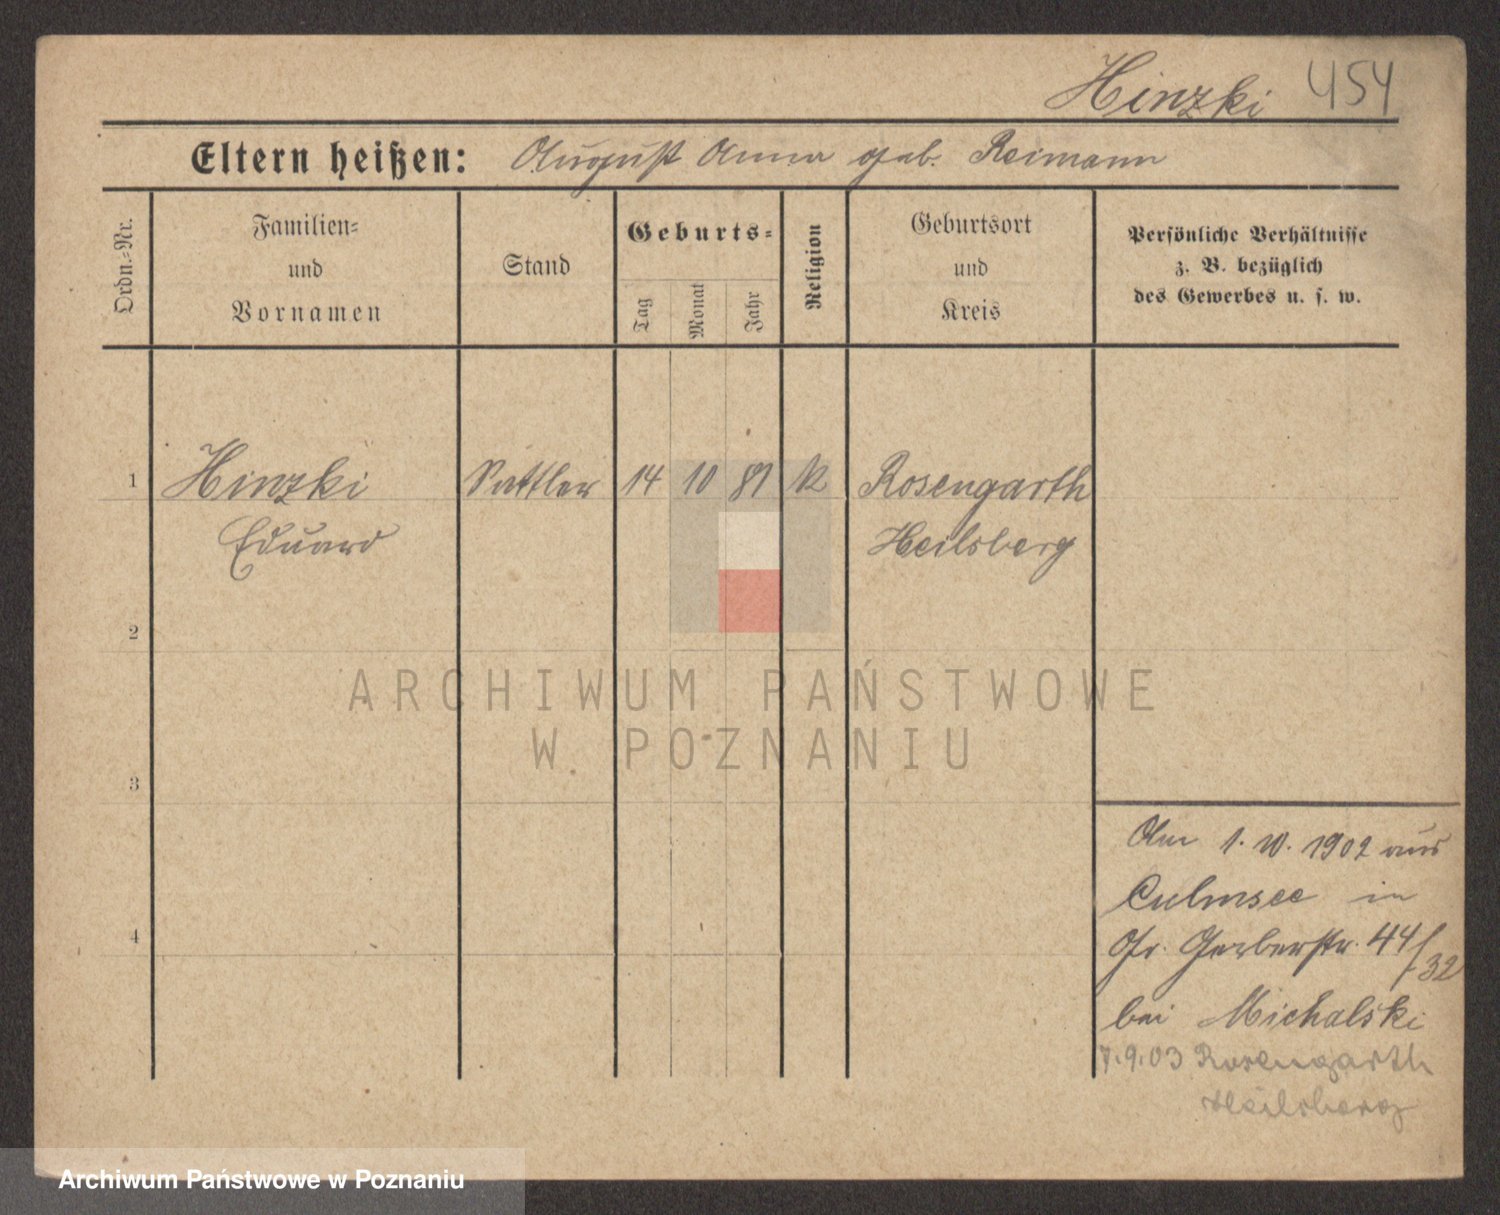 Hinzki 454
Eltern heißen: August Anna geb. Reimann
Ordn.-Nr.
Familien-
und
Vornamen
Stand
Geburts-
Tag
Monat
Jahr
Religion
Geburtsort
und
Kreis
Persönliche Verhältnisse
z. B. bezüglich
des Gewerbes u. s. w.
1 Hinzki Sattler 14 10 81 k Rosengarth
Eduard Heilsberg
2
ARCHIWUM PAŃSTWOWE
W POZNANIU
3
Am 1. 10. 1902 aus
Culmsee in
4 Gr. Gerberstr. 44/32
bei Michalski
7.9.03 Rosengarth
Heilsberg
Archiwum Państwowe w Poznaniu